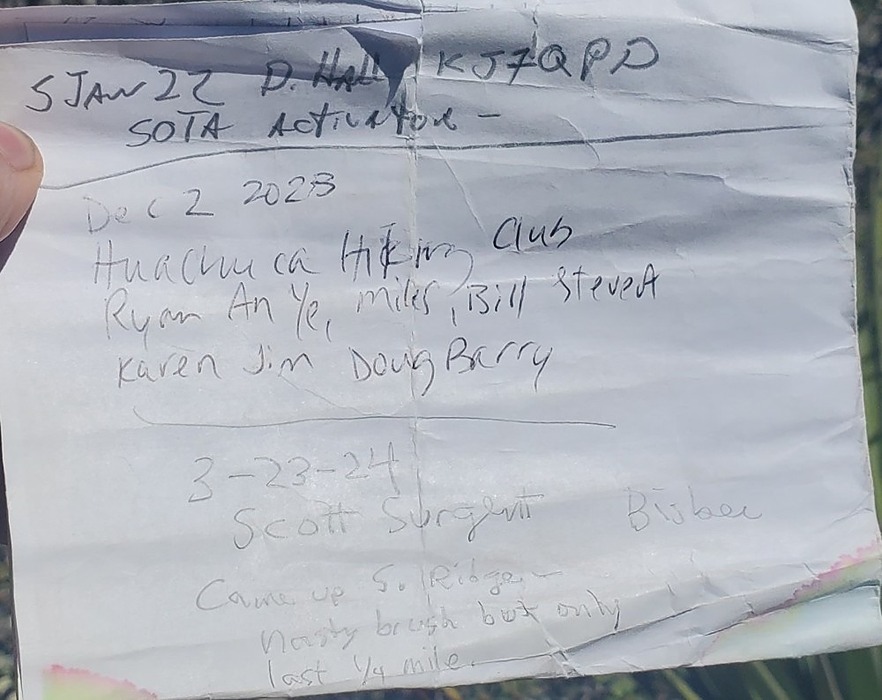 5 JAN 22 D. HALL KJ7QPD
SOTA ACTIVATOR -
Dec 2 2023
Huachuca Hiking Club
Ryan An Ye, Miles, Bill SteveA
Karen Jim Doug Barry
3-23-24
Scott Surgent Bisbee
Came up S. Ridge -
nasty brush but only
last 1/4 mile.